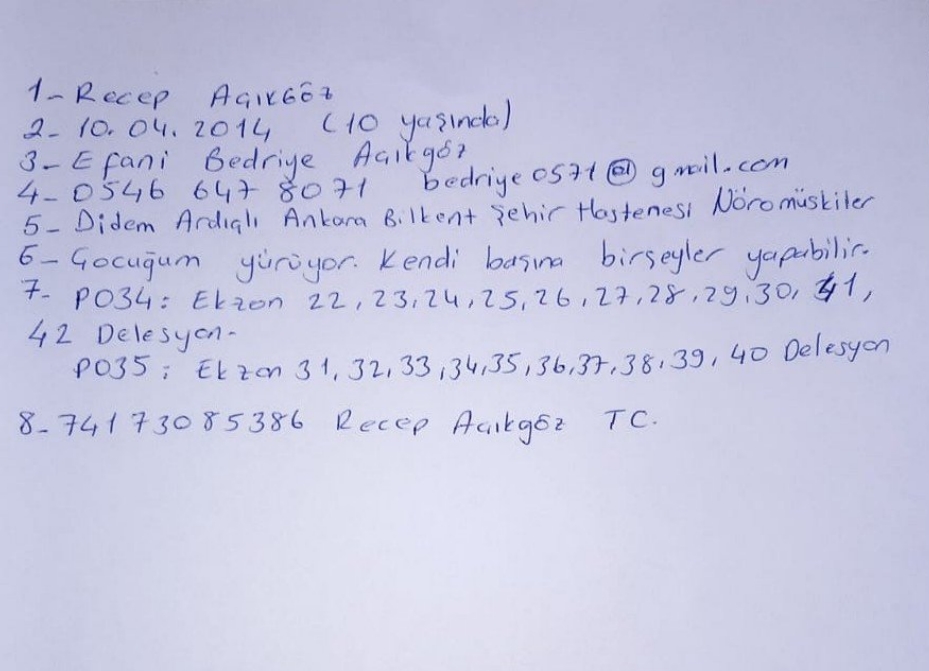 1- Recep Açıkgöz
2- 10.04.2014 (10 yaşında)
3- Efani Bedriye Açıkgöz
4- 0546 647 8071 bedriye0571@gmail.com
5- Didem Ardıçlı Ankara Bilkent Şehir Hastenesi Nöromüskiler
6- Çocuğum yürüyor. Kendi başına birşeyler yapabilir.
7- PO34: Ekzon 22, 23, 24, 25, 26, 27, 28, 29, 30, 41,
42 Delesyon-
PO35: Ekzon 31, 32, 33, 34, 35, 36, 37, 38, 39, 40 Delesyon
8- 74173085386 Recep Açıkgöz TC.